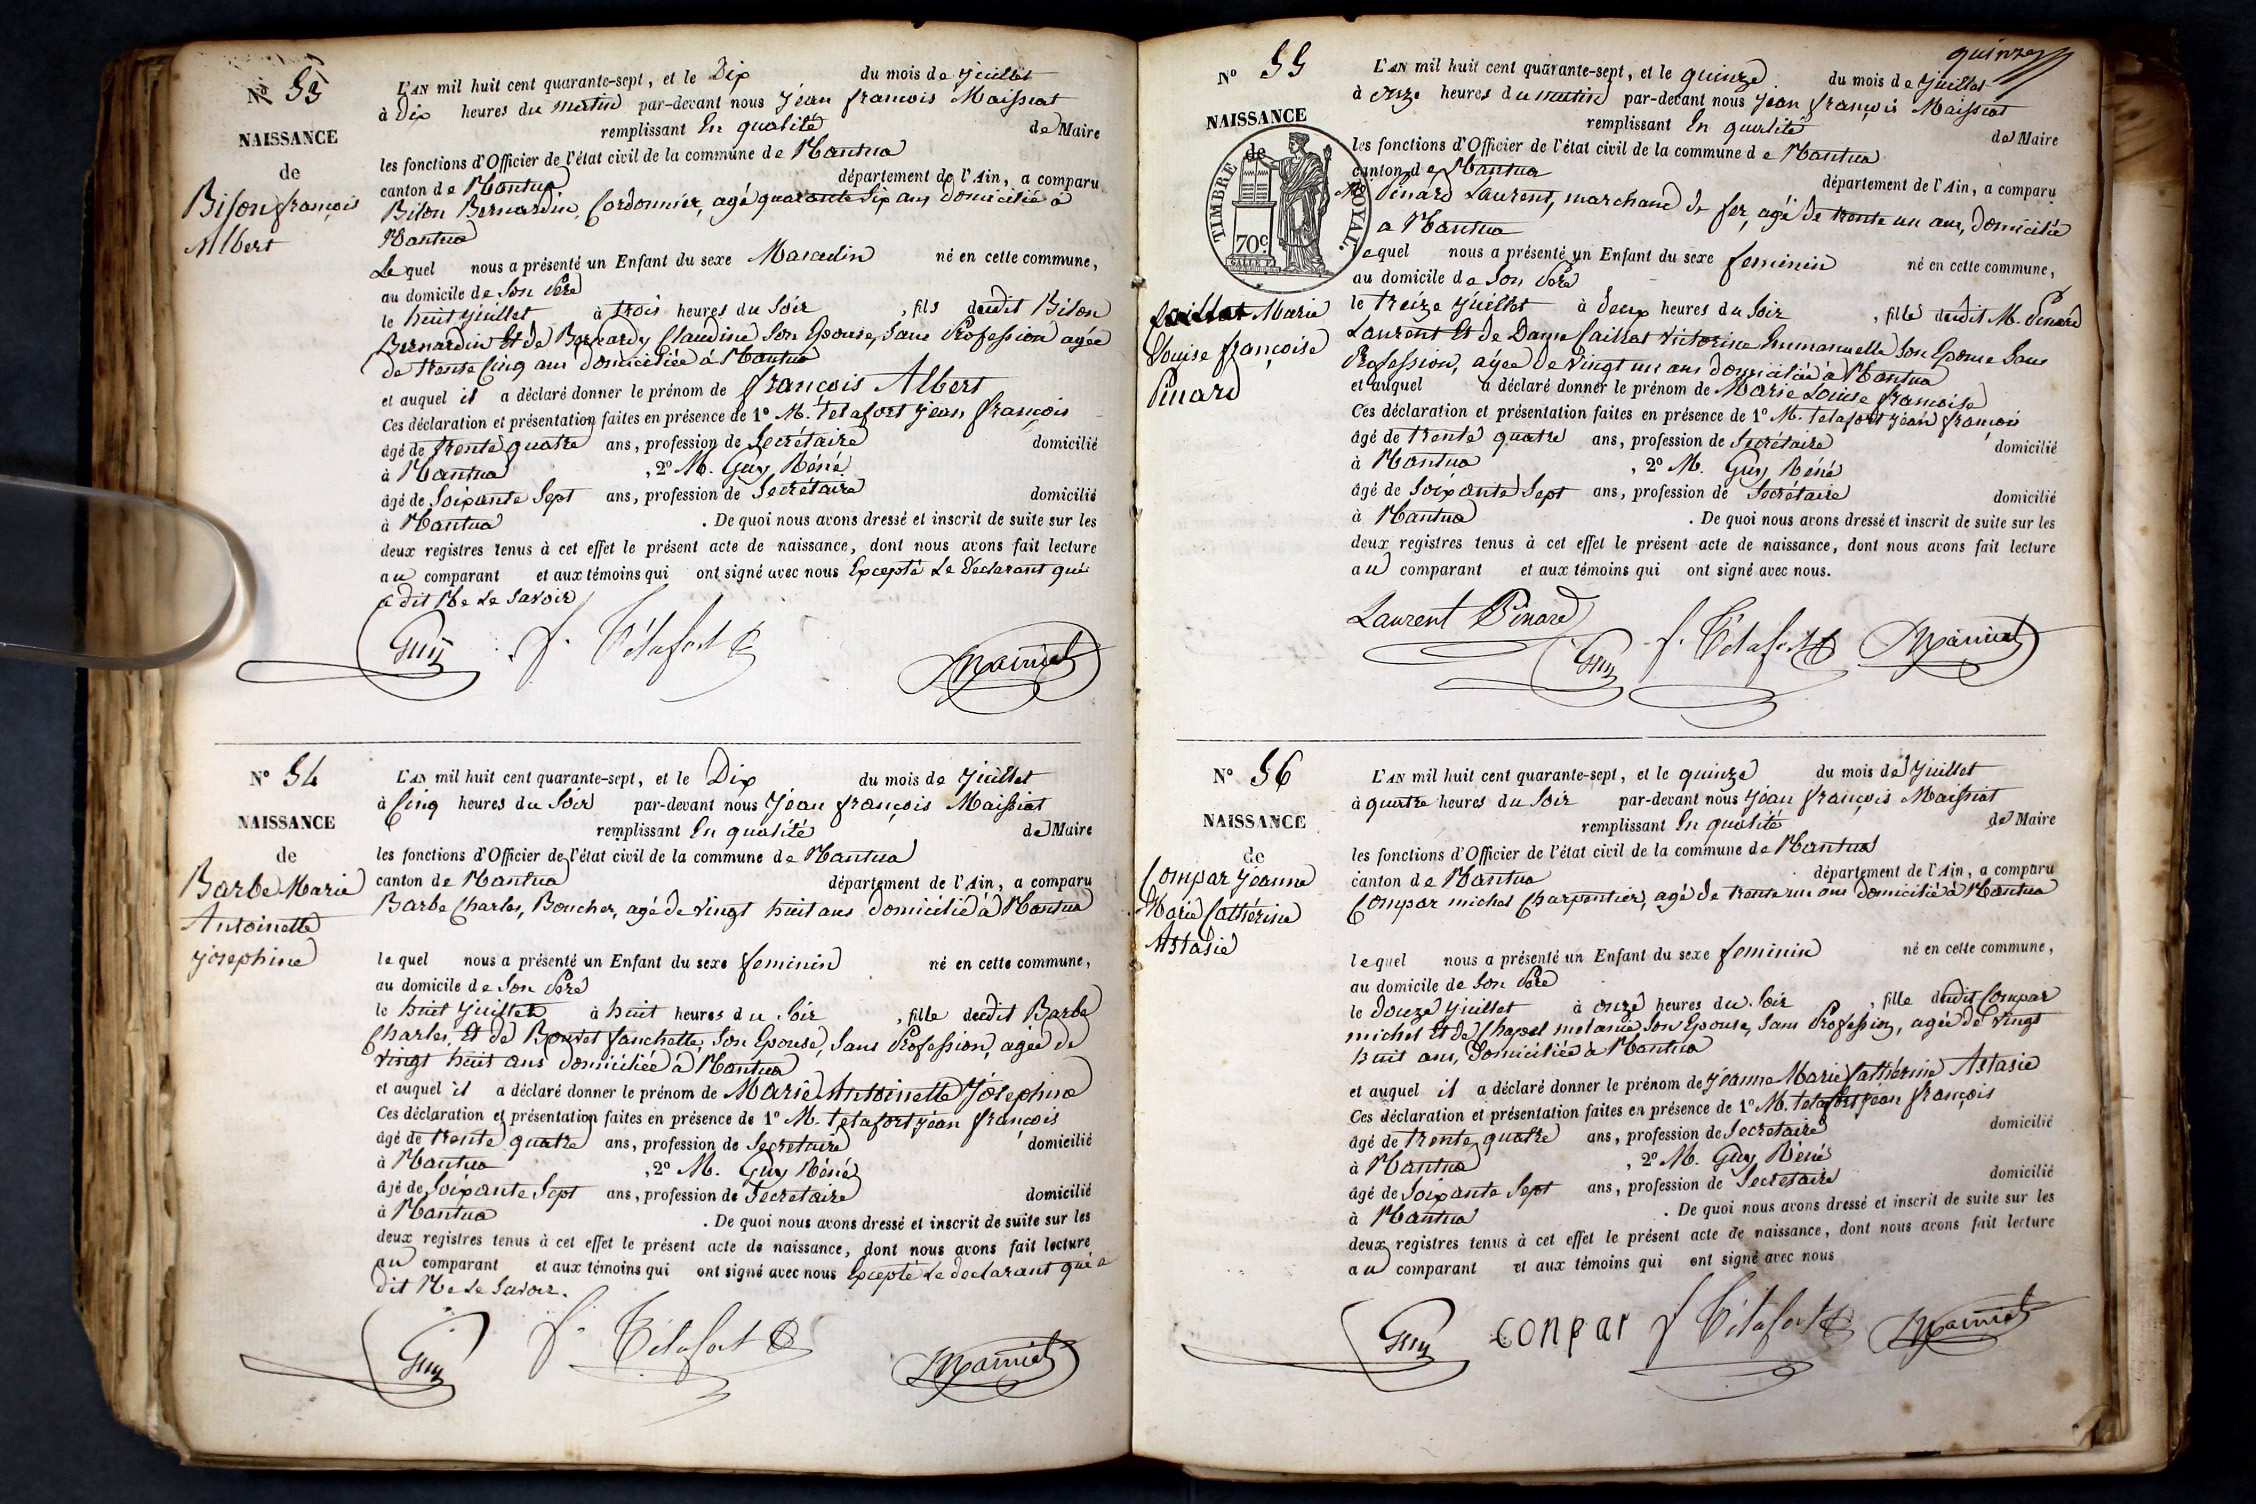 Nº 53
NAISSANCE
de
Bison françois
Albert
L'AN mil huit cent quarante-sept, et le Dix du mois de Juillet
à Dix heures du matin par-devant nous Jean françois Maissiat
remplissant En qualité de Maire
les fonctions d'Officier de l'état civil de la commune de Nantua
canton de Nantua département de l'Ain, a comparu
Bison Bernardin, Cordonnier, agé quarante Six ans domicilié à
Nantua
Le quel nous a présenté un Enfant du sexe Masculin né en cette commune,
au domicile de Son Père
le huit Juillet à trois heures du Soir, fils dudit Bison
Bernardin Et de Claudine Son Epouse, Sans Profession agée
de trente Cinq ans domiciliée à Nantua
et auquel il a déclaré donner le prénom de françois Albert
Ces déclaration et présentation faites en présence de 1º M. Tétafort Jean françois
âgé de trente quatre ans, profession de Secrétaire domicilié
à Nantua, 2º M. Guy Réné
âgé de Soixante Sept ans, profession de Secrétaire domicilié
à Nantua. De quoi nous avons dressé et inscrit de suite sur les
deux registres tenus à cet effet le présent acte de naissance, dont nous avons fait lecture
au comparant et aux témoins qui ont signé avec nous Excepté Le déclarant qui
a dit Ne Le Savoir
Guy f. Tétafort Maissiat
Nº 54
NAISSANCE
de
Barbe Marie
Antoinette
Josephine
L'AN mil huit cent quarante-sept, et le Dix du mois de Juillet
à Cinq heures du Soir par-devant nous Jean françois Maissiat
remplissant En qualité de Maire
les fonctions d'Officier de l'état civil de la commune de Nantua
canton de Nantua département de l'Ain, a comparu
Barbe Charles, Boucher, agé de vingt huit ans domicilié à Nantua
le quel nous a présenté un Enfant du sexe feminin né en cette commune,
au domicile de Son Père
le huit Juillet à huit heures du Soir, fille dudit Barbe
Charles, Et de Bouvet fanchette, Son Epouse, Sans Profession, agée de
vingt huit ans domiciliée à Nantua
et auquel il a déclaré donner le prénom de Marie Antoinette Josephine
Ces déclaration et présentation faites en présence de 1º M. Tétafort Jean françois
âgé de trente quatre ans, profession de Secretaire domicilié
à Nantua, 2º M. Guy Réné
âgé de Soixante Sept ans, profession de Secretaire domicilié
à Nantua. De quoi nous avons dressé et inscrit de suite sur les
deux registres tenus à cet effet le présent acte de naissance, dont nous avons fait lecture
au comparant et aux témoins qui ont signé avec nous Excepté Le declarant qui a
dit Ne Le Savoir.
Guy f. Tétafort Maissiat
quinze
Nº 55
NAISSANCE
de
TIMBRE ROYAL.
70c
Marie
Louise françoise
Pinard
L'AN mil huit cent quarante-sept, et le quinze du mois de Juillet
à onze heures du matin par-devant nous Jean françois Maissiat
remplissant En qualité de Maire
les fonctions d'Officier de l'état civil de la commune de Nantua
canton de Nantua département de l'Ain, a comparu
M. Pinard Laurent, marchand de fer, agé de trente un ans, domicilié
a Nantua
Lequel nous a présenté un Enfant du sexe feminin né en cette commune,
au domicile de Son Père
le treize Juillet à deux heures du Soir, fille dudit M. Pinard
Laurent Et de Dame Caillat Victorine Emmanuelle Son Epouse Sans
Profession, agée de vingt un ans domiciliée à Nantua
et auquel a déclaré donner le prénom de Marie Louise françoise
Ces déclaration et présentation faites en présence de 1º M. Tétafort Jean françois
âgé de trente quatre ans, profession de Secrétaire domicilié
à Nantua, 2º M. Guy Réné
âgé de Soixante Sept ans, profession de Secrétaire domicilié
à Nantua. De quoi nous avons dressé et inscrit de suite sur les
deux registres tenus à cet effet le présent acte de naissance, dont nous avons fait lecture
au comparant et aux témoins qui ont signé avec nous.
Laurent Pinard
Guy f. Tétafort Maissiat
Nº 56
NAISSANCE
de
Compar Jeanne
Marie Cathérine
Astasie
L'AN mil huit cent quarante-sept, et le quinze du mois de Juillet
à quatre heures du Soir par-devant nous Jean françois Maissiat
remplissant En qualité de Maire
les fonctions d'Officier de l'état civil de la commune de Nantua
canton de Nantua département de l'Ain, a comparu
Compar michel Charpentier, agé de trente un ans domicilié à Nantua
lequel nous a présenté un Enfant du sexe feminin né en cette commune,
au domicile de Son Père
le douze Juillet à onze heures du Soir, fille dudit Compar
michel Et de Chapel melanie Son Epouse, Sans Profession, agée de vingt
huit ans, Domiciliée à Nantua
et auquel il a déclaré donner le prénom de Jeanne Marie Cathérine Astasie
Ces déclaration et présentation faites en présence de 1º M. Tétafort Jean françois
âgé de trente quatre ans, profession de Secretaire domicilié
à Nantua, 2º M. Guy Réné
âgé de Soixante Sept ans, profession de Secretaire domicilié
à Nantua. De quoi nous avons dressé et inscrit de suite sur les
deux registres tenus à cet effet le présent acte de naissance, dont nous avons fait lecture
au comparant et aux témoins qui ont signé avec nous
Guy conpar f. Tétafort Maissiat